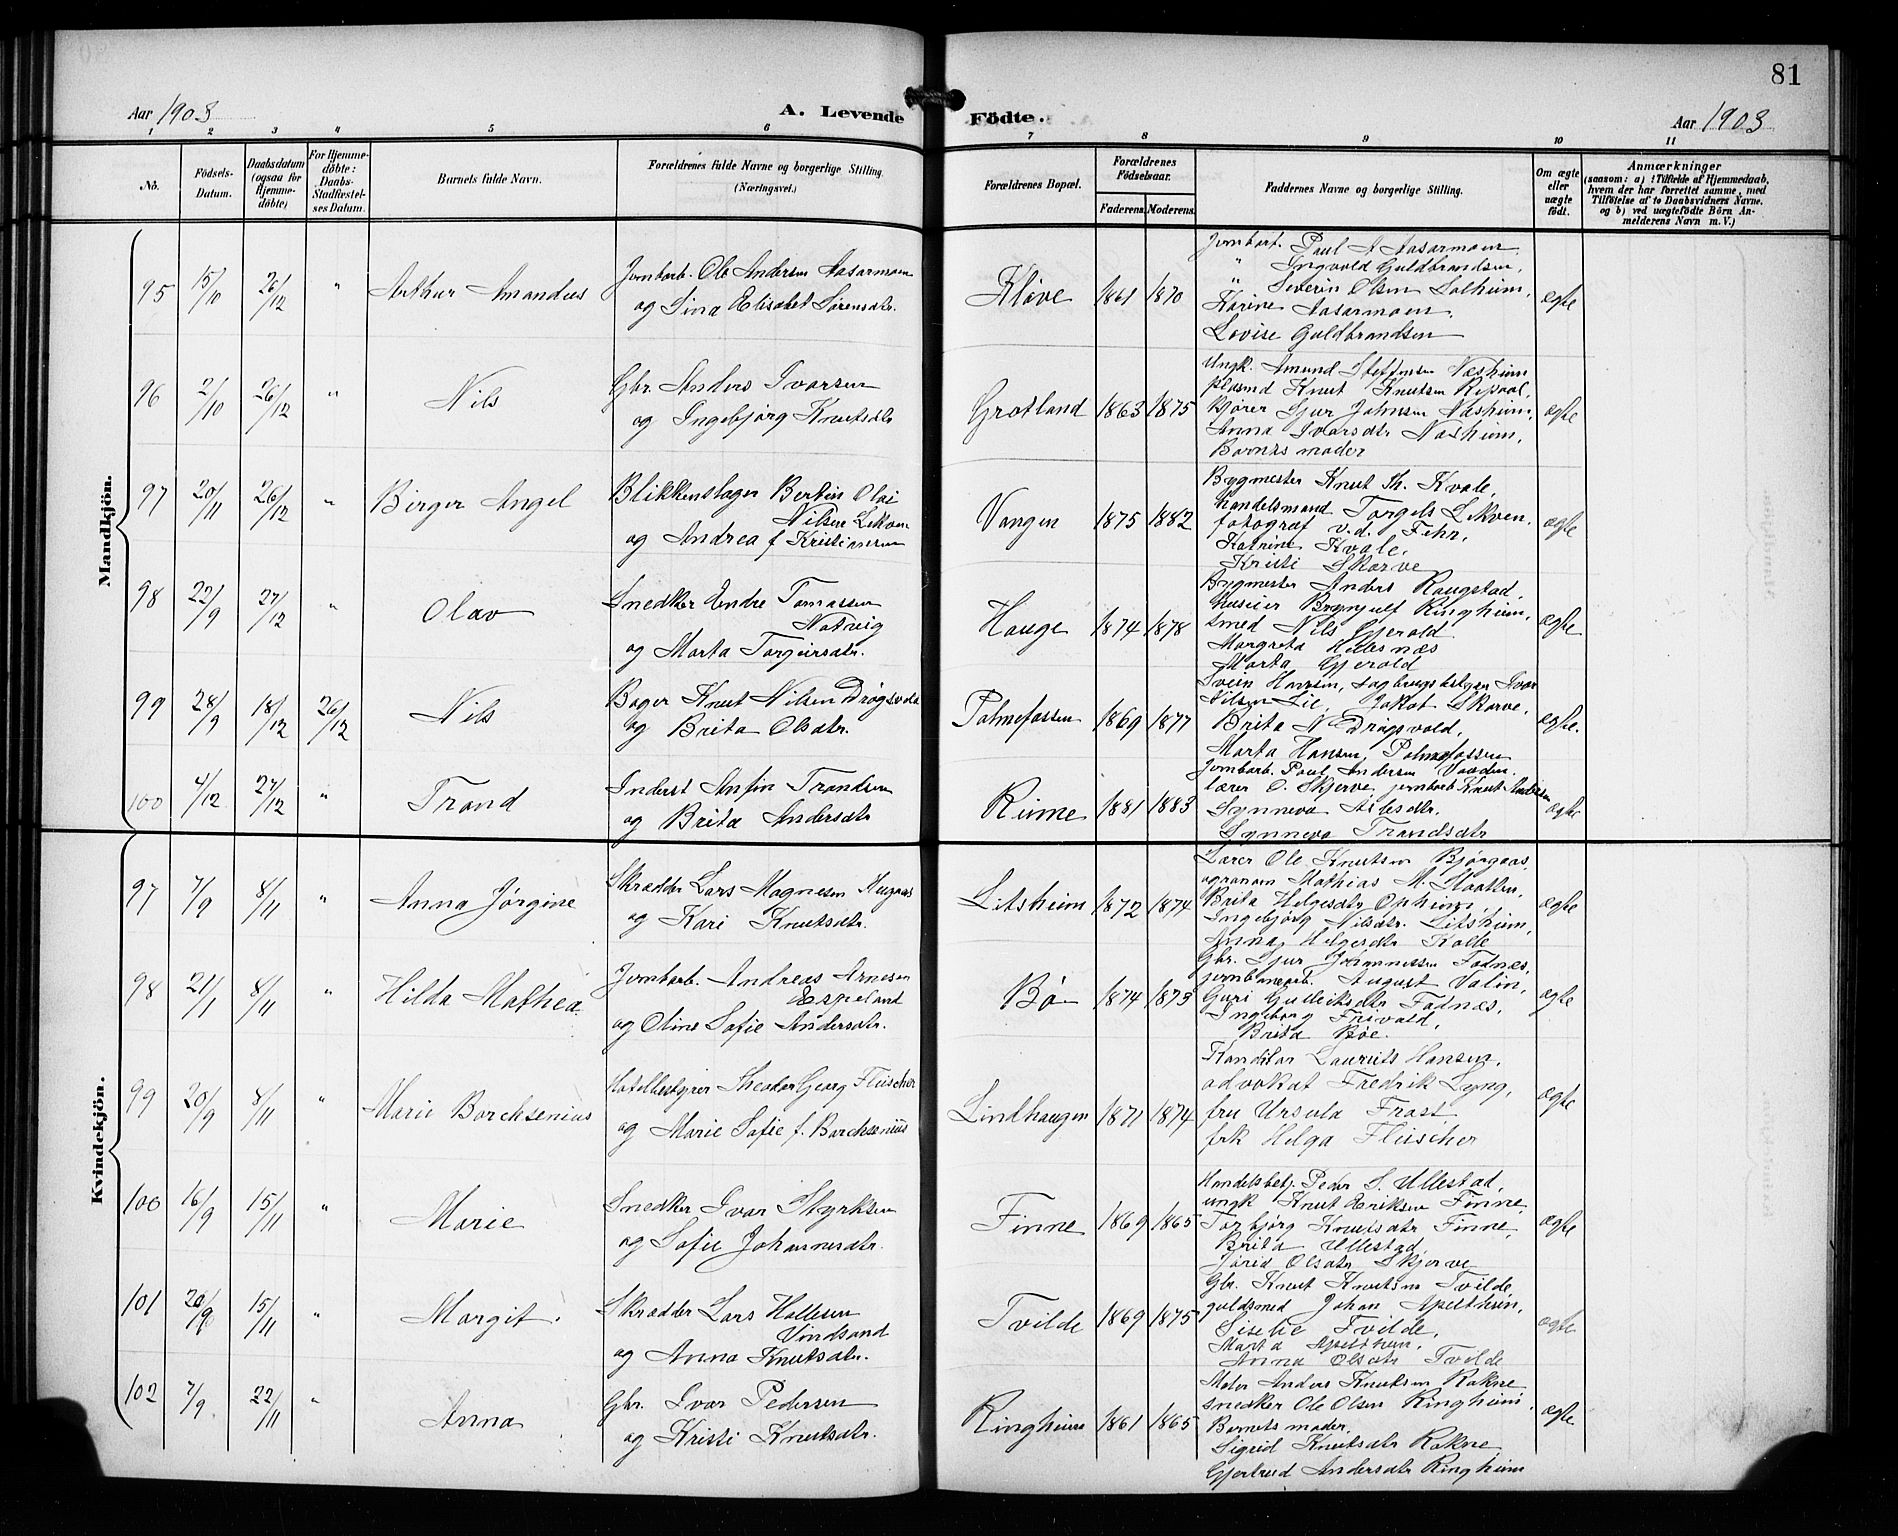 81
Aar 1903
A. Levende Födte.
Aar 1903
1 2 3 4 5 6 7 8 9 10 11
No.
Födsels-Datum.
Daabsdatum (ogsaa for Hjemme-döbte)
For Hjemme-döbte: Daabs-Stadfæstel-ses Datum.
Barnets fulde Navn.
Forældrenes fulde Navne og borgerlige Stilling.
(Næringsvei.)
Forældrenes Bopæl.
Forældrenes Födselsaar.
Faderens. Moderens.
Faddernes Navne og borgerlige Stilling.
Om ægte eller uægte födt.
Anmærkninger
(saasom: a) i Tilfælde af Hjemmedaab, hvem der har forrettet samme, med Tilföielse af to Daabsvidners Navne. og b) ved uægtefödte Börn An-melderens Navn m. V.)
Mandkjön.
95 15/10 26/12 " Arthur Amandus
Jernbarb. Ole Andersen Aasarmoen
og Sina Elisabet Sörensdtr.
Kløve 1861 1870
Jernbarb. Paul A Aasarmoen
" Ingvald Guldbrandsen,
" Severin Olsen Solheim,
Karine Aasarmoen,
Lovise Guldbrandsen
ægte
96 2/10 26/12 " Nils
Gbr. Anders Ivarsen
og Ingebjørg Knutsdtr
Grotland 1863 1875
Ungk. Amund Steffensen Næsheim
Knut Knutsen
Sjur Johnsen Næsheim,
Anna Ivarsdtr Næsheim,
Barnets moder
ægte
97 20/11 26/12 " Birger Angel
Blikkenslager Bertin Olai
Nilsen Lekven
og Andrea f. Kristiansen
Vangen 1875 1882
Bygmester Knut Th. Kvale,
handelsmand Torgels Lekven,
fotograf v.d. Fehr,
Katrine Kvale,
Kristi Skorve
ægte
98 22/9 27/12 " Olav
Snedker Endre Tomassen
Natvig
og Marta Torgeirsdtr.
Hauge 1874 1878
Bygmester Anders Raugstad,
Brynjulf Ringheim,
smed Nils Gjerald
Margreta Hellesnæs
Marta Gjerald
ægte
99 28/9 18/12 26/12 Nils
Bager Knut Nilsen Drøgsvold
og Brita Olsdtr.
Palmefossen 1869 1877
Svein Hansen, sagbrugsbestyrer Ivar
Nilsen Lie, Jakob Skorve,
Brita N Drøgsvold,
Marta Hansen, Palmefossen
ægte.
100 4/12 27/12 " Trond
Inderst Anfin Trondsen
og Brita Andersdtr
Rinne 1881 1883
Jernbarb. Paul Andersen Vaaden
lærer O. Skjerve, jernbarb Knut Andersen
Synneva
Synneva Trondsdtr
ægte
Kvindekjön.
97 7/9 8/11 " Anna Jørgine
Skrædder Lars Magnesen
og Kari Knutsdtr.
Litsheim 1872 1874
Lærer Ole Knutsen Bjørgaas,
agronom Mathias M.
Brita Helgesdtr Opheim,
Ingebjørg Nilsdtr. Litsheim,
Anna Helgesdtr
ægte
98 21/1 8/11 " Hilda Mathea
Jernbarb. Andreas Arnesen
Espeland
og Oline Sofie Andersdtr.
Bø 1874 1873
Gbr. Sjur Johannessen Fadnæs,
jernbanearb. August Valin,
Guri Gulleiksdtr Fadnæs,
Ingeborg Frivald,
Brita Bøe.
ægte
99 20/9 8/11 " Marie Borchsenius
Hotelbestyrer Theodor Georg Fleischer
og Marie Sofie f. Borchsenius
Lindhaugen 1871 1874
Konditor Laurits Hansen,
advokat Fredrik Lyng,
fru Ursula Frost
frk Helga Fleischer
ægte
100 16/9 15/11 " Marie
Snedker Ivar Styrksen
og Sofie Johannesdtr.
Finne 1869 1865
Handelsbetj. Peder S. Ullestad,
ungk Knut Eriksen Finne,
Torbjørg Knutsdtr Finne,
Brita Ullestad
Jorid Olsdtr Skjerve
ægte
101 20/9 15/11 " Margit.
Skrædder Lars Hallesen
Vindsand
og Anna Knutsdtr.
Tvilde 1869 1875
Gbr. Knut Knutsen Tvilde,
guldsmed Johan Apelthun,
Siselie Tvilde,
Marta Apelthun,
Anna Olsdtr Tvilde
ægte
102 7/9 22/11 " Anna
Gbr. Ivar Pedersen
og Kristi Knutsdtr.
Ringheim 1861 1865
Maler Anders Knutsen Rokne
snedker Ole Olsen Ringheim
Barnets moder,
Sigrid Knutsdtr Rokne,
Gjertrud Andersdtr Ringheim
ægte